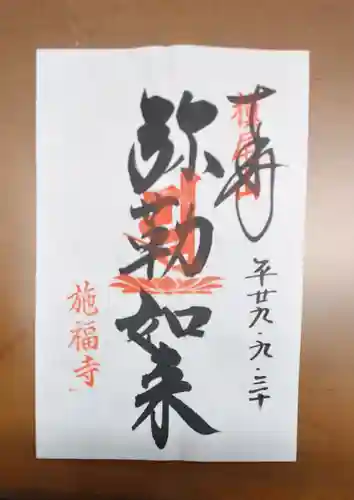 奉拝
平廿九・九・三十
弥勒如来
施福寺